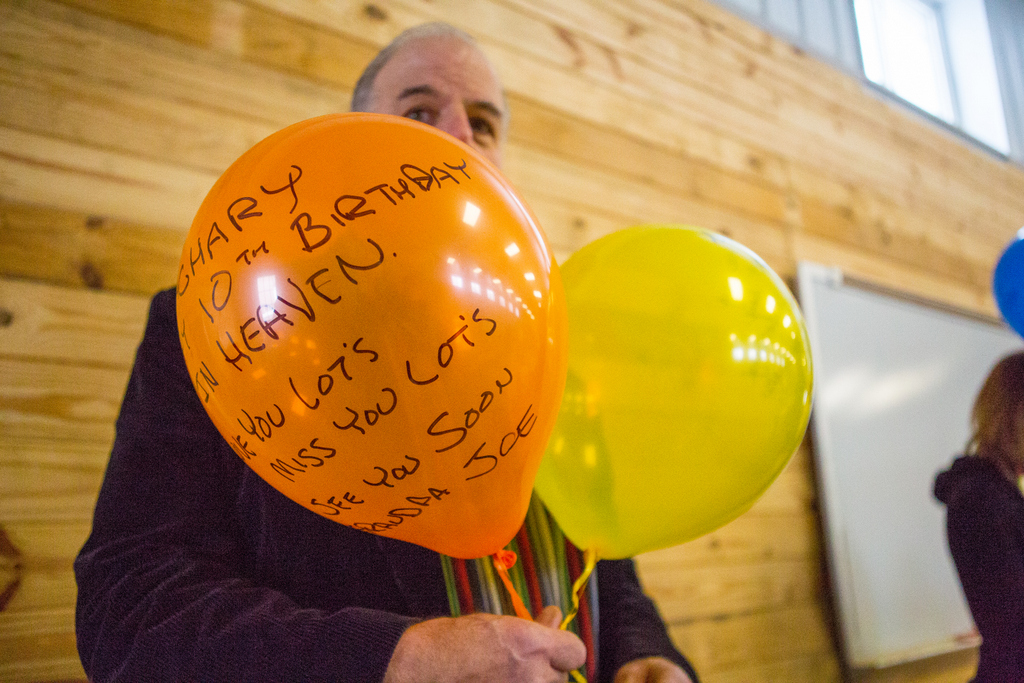 CHARY
10TH BIRTHDAY
IN HEAVEN.
YOU LOT'S
MISS YOU LOT'S
SEE YOU SOON
JOE